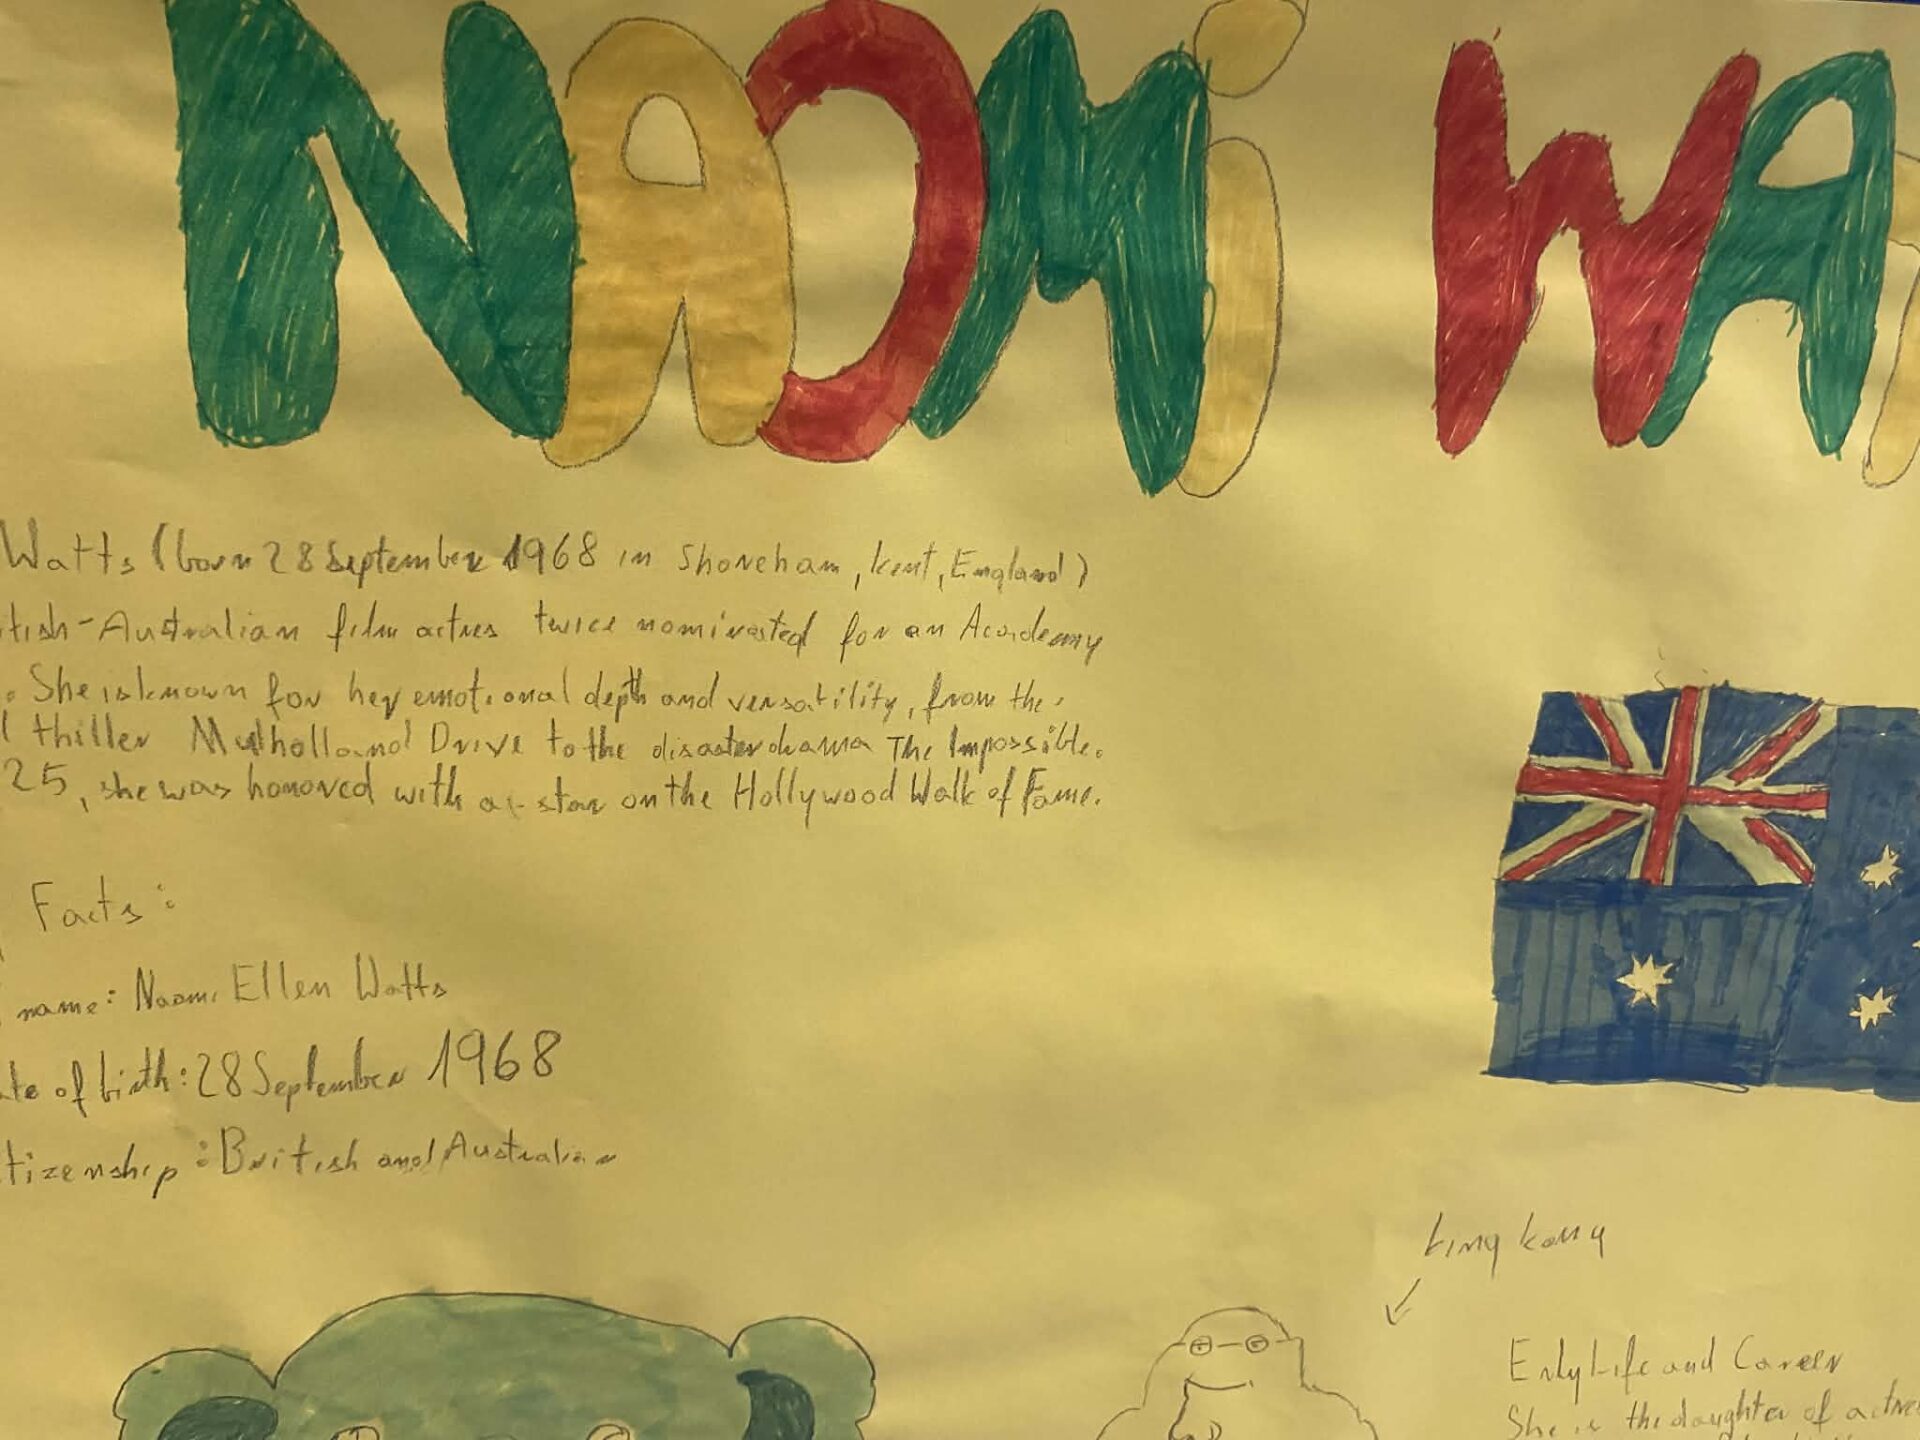 NAOMi WA
Watts (born 28 September 1968 in Shoreham, Kent, England)
tish-Australian film actres twice nominated for an Academy
. She is known for her emotional depth and versatility, from the
l thiller Mulholland Drive to the disaster drama The Impossible.
25, she was honored with a star on the Hollywood Walk of Fame.
Facts:
name: Naomi Ellen Watts
ate of birth: 28 September 1968
tizenship: British and Australian
King Kong
Erly Life and Career
She is the daughter of actres